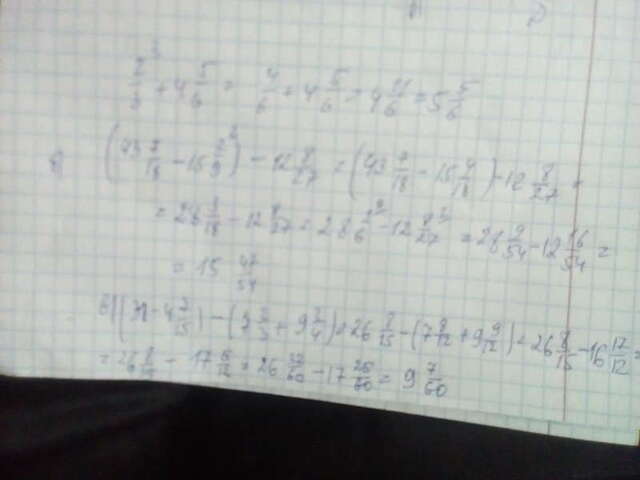 2/3 + 4 5/6 = 4/6 + 4 5/6 = 4 11/6 = 5 5/6
(43 7/18 - 15 2/9) - 12 8/27 = (43 7/18 - 15 4/18) - 12 8/27 =
= 28 3/18 - 12 8/27 = 28 1/6 - 12 8/27 = 28 9/54 - 12 16/54 =
= 15 47/54
в) (31 - 4 7/15) - ( 2/3 + 9 3/4) = 26 8/15 - (7 8/12 + 9 9/12) = 26 8/15 - 16 17/12 =
= 26 8/15 - 17 5/12 = 26 32/60 - 17 25/60 = 9 7/60